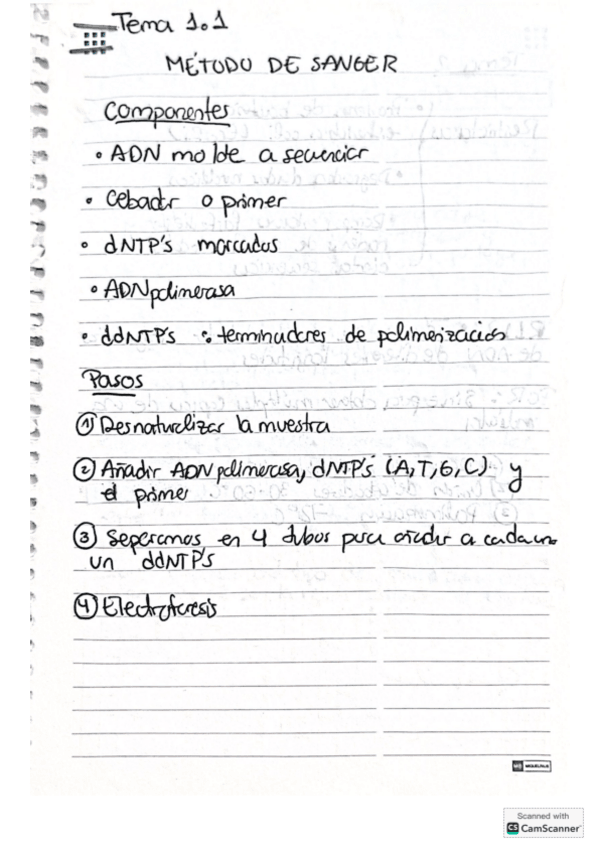 Tema 1.1
MÉTODO DE SANGER
Componentes
• ADN molde a secuenciar
• Cebador o primer
• dNTP's marcados
• ADNpolimerasa
• ddNTP's : terminadores de polimerización
Pasos
① Desnaturalizar la muestra
② Añadir ADNpolimerasa, dNTP's (A,T,G,C) y
el primer
③ Separamos en 4 tubos para añadir a cada uno
un ddNTP's
④ Electroforesis
MIQUELRIUS
Scanned with
CS CamScanner